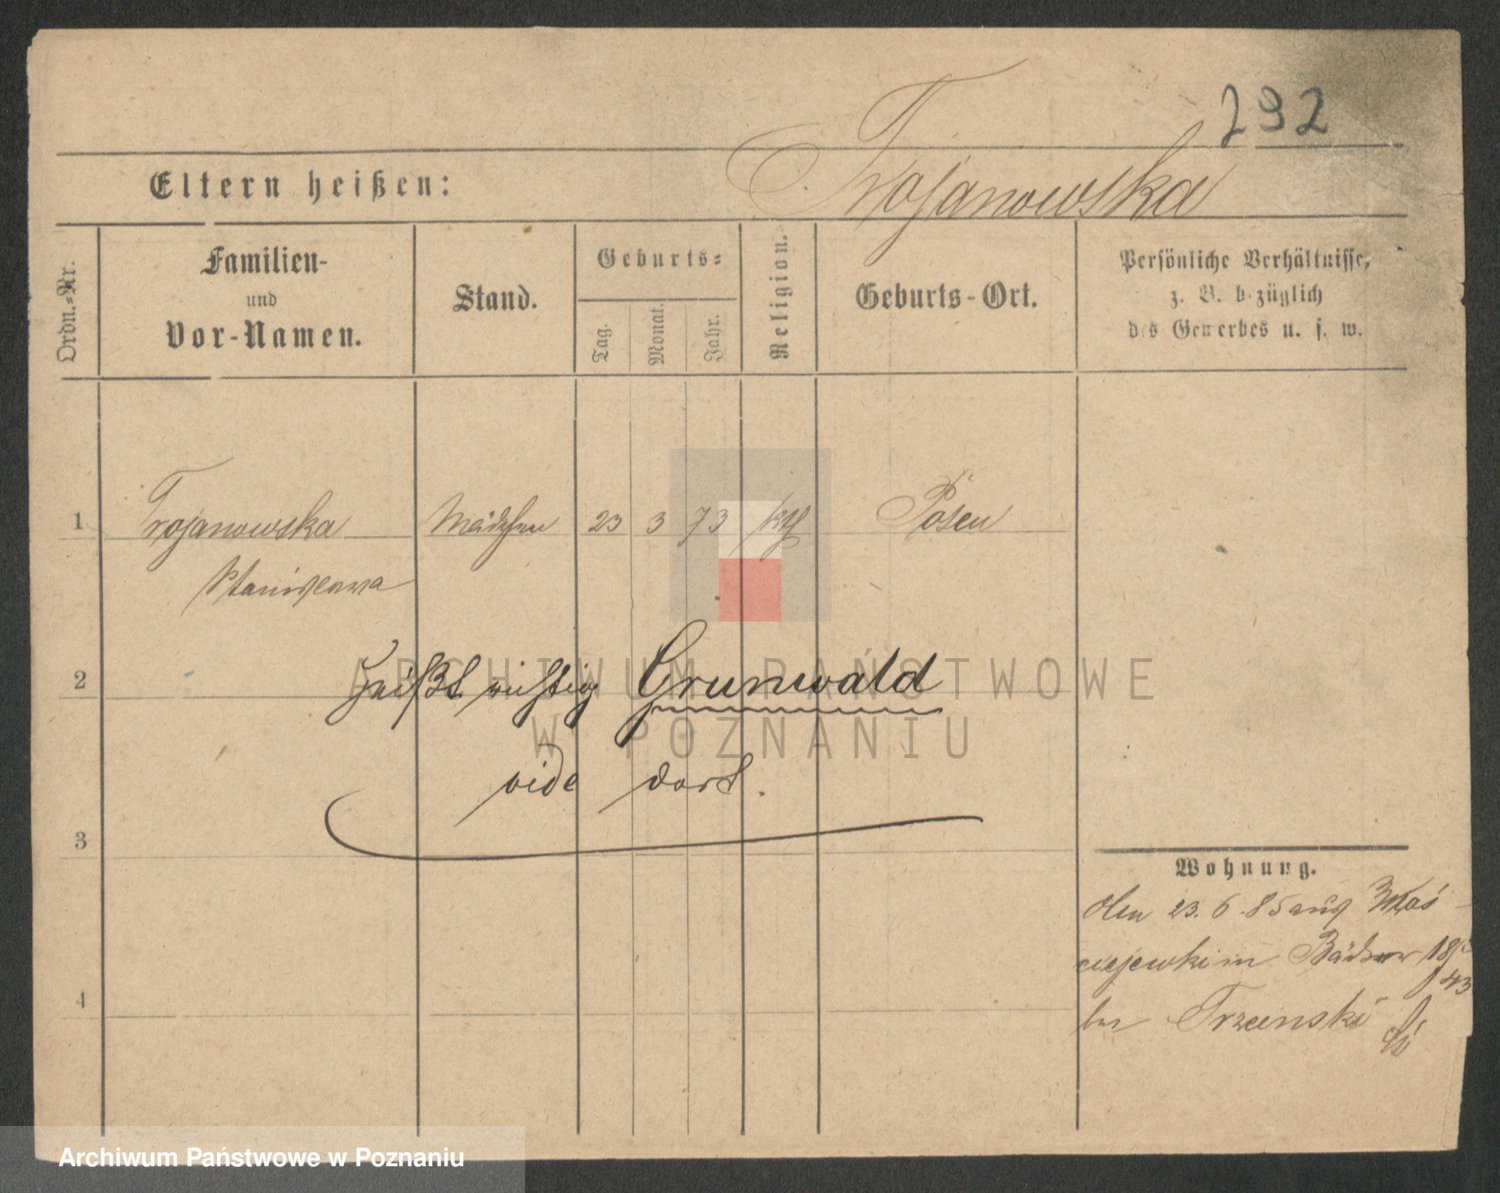 292
Trojanowska
Eltern heißen:
Ordn.-Nr.
Familien-
und
Vor-Namen.
Stand.
Geburts-
Tag.
Monat.
Jahr.
Religion.
Geburts-Ort.
Persönliche Verhältnisse,
z. B. bezüglich
des Gewerbes u. s. w.
1 Trojanowska Mädchen 23 3 73 kth Posen
Stanislawa
2 heißt richtig Grunwald
vide dort.
3
Wohnung.
23. 6. 85 aus
ciejewki in 18/
43
4
bei Trzcinski
ARCHIWUM PAŃSTWOWE
W POZNANIU
Archiwum Państwowe w Poznaniu